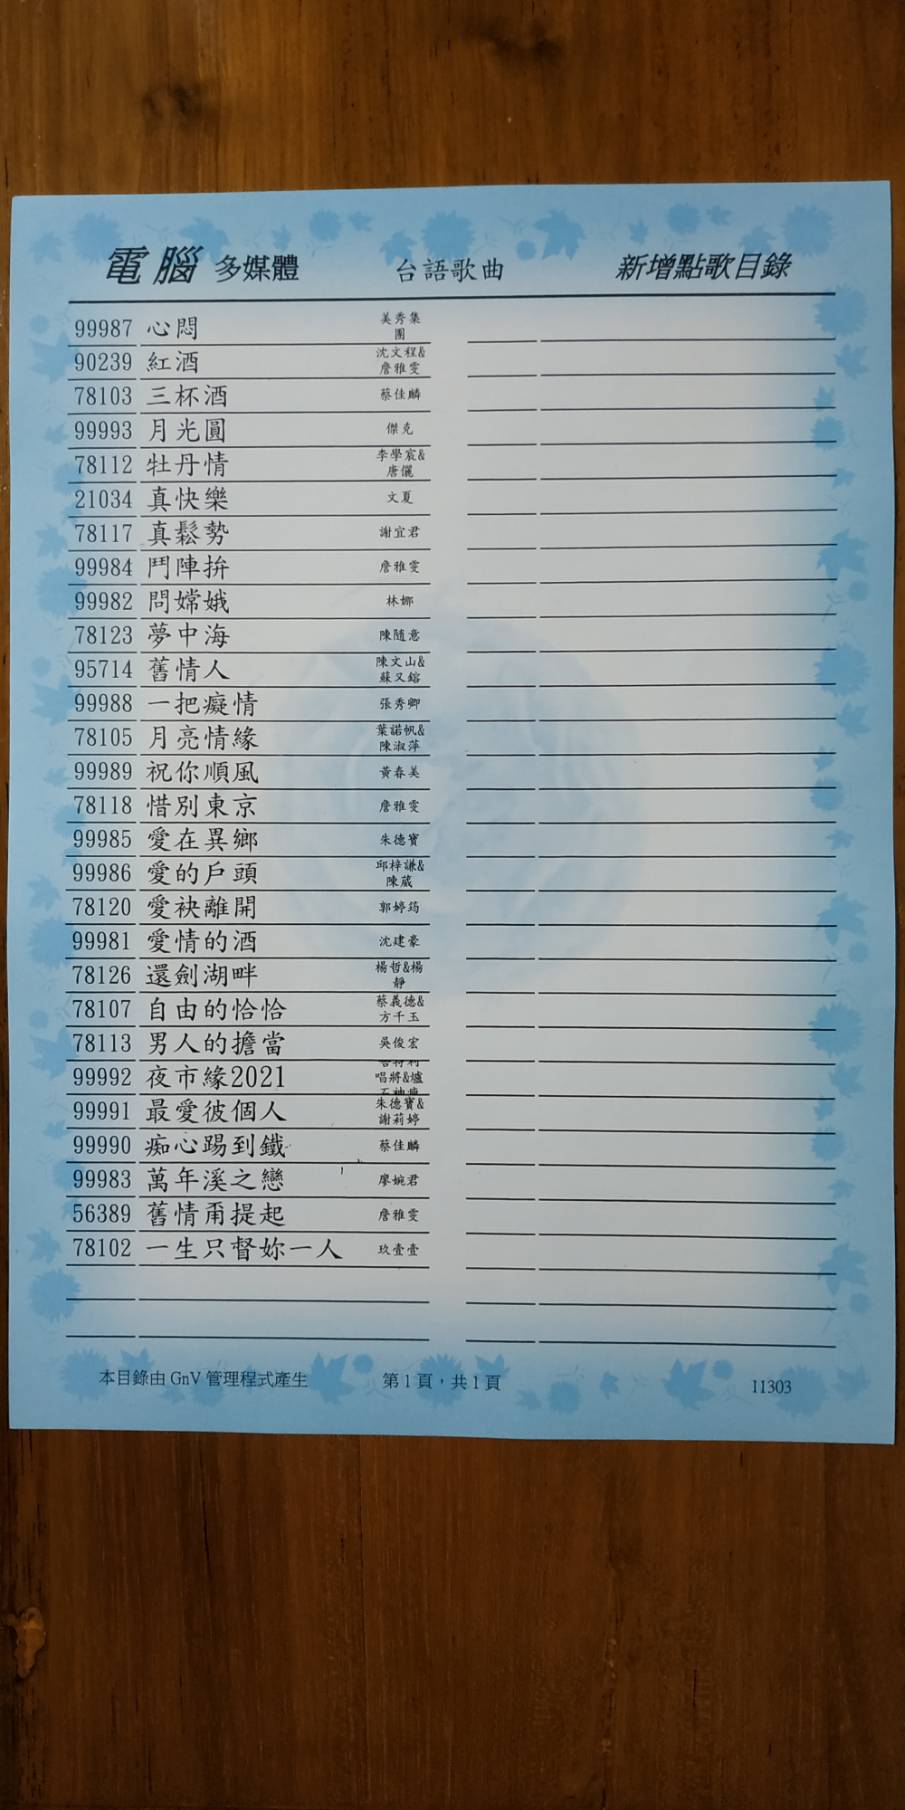 電腦 多媒體 台語歌曲 新增點歌目錄
99987 心悶 美秀集團
90239 紅酒 沈文程&詹雅雯
78103 三杯酒 蔡佳麟
99993 月光圓 傑克
78112 牡丹情 李學宸&唐儷
21034 真快樂 文夏
78117 真鬆勢 謝宜君
99984 鬥陣拚 詹雅雯
99982 問嫦娥 林娜
78123 夢中海 陳隨意
95714 舊情人 陳文山&蘇又鎔
99988 一把癡情 張秀卿
78105 月亮情緣 葉諾帆&陳淑萍
99989 祝你順風 黃春美
78118 惜別東京 詹雅雯
99985 愛在異鄉 朱德寶
99986 愛的戶頭 邱梓謙&陳葳
78120 愛袂離開 郭婷筠
99981 愛情的酒 沈建豪
78126 還劍湖畔 楊哲&楊靜
78107 自由的恰恰 蔡義德&方千玉
78113 男人的擔當 吳俊宏
99992 夜市緣2021 唱將&爐
99991 最愛彼個人 朱德寶&謝莉婷
99990 痴心踢到鐵 蔡佳麟
99983 萬年溪之戀 廖婉君
56389 舊情甭提起 詹雅雯
78102 一生只督妳一人 玖壹壹
本目錄由 GnV 管理程式產生 第 1 頁，共 1 頁 11303